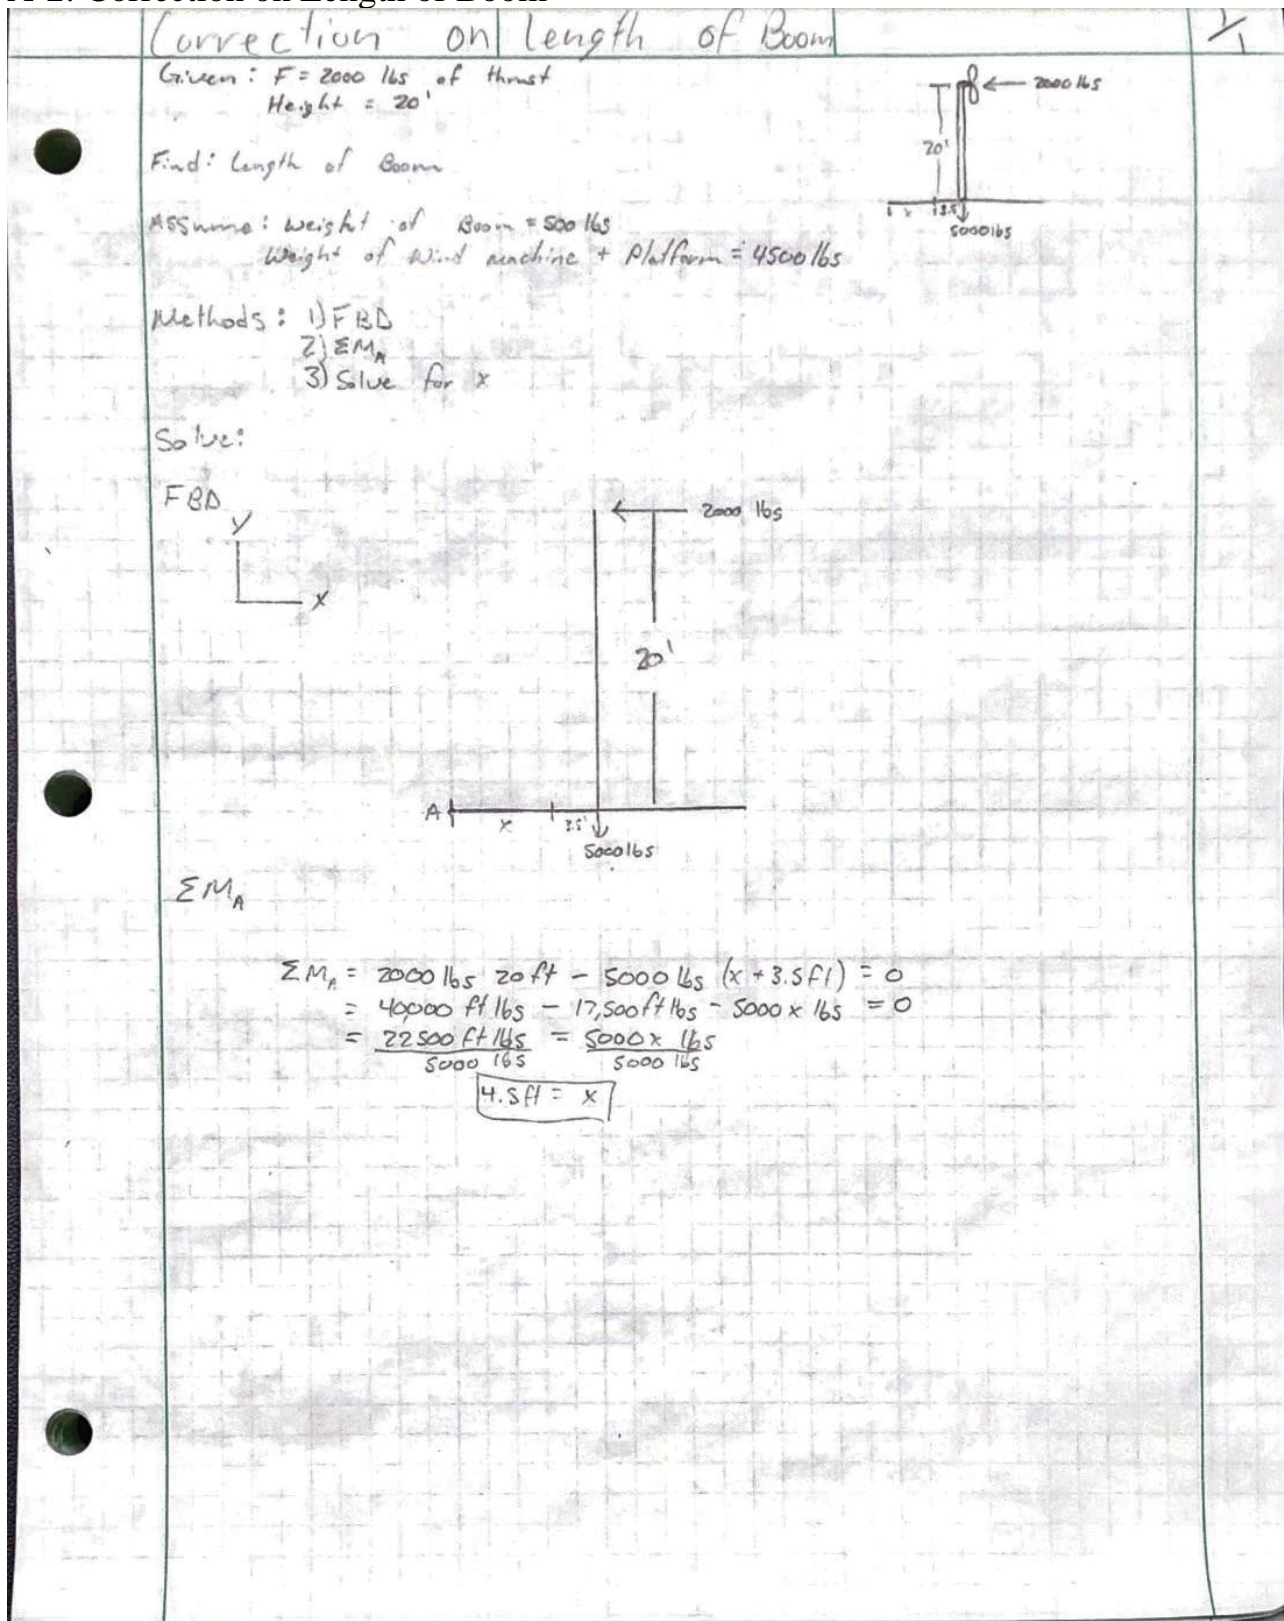 A-2: Correction on Length of Boom
Correction on length of Boom
1/1
Given: F = 2000 lbs of thrust
Height = 20'
2000 lbs
20'
x 3.5'
5000 lbs
Find: Length of Boom
Assume: Weight of Boom = 500 lbs
Weight of Wind machine + Platform = 4500 lbs
Methods: 1) FBD
2) ΣM_A
3) Solve for x
Solve:
FBD
y
x
2000 lbs
20'
A
x 3.5'
5000 lbs
ΣM_A
ΣM_A = 2000 lbs 20 ft - 5000 lbs (x + 3.5 ft) = 0
= 40,000 ft lbs - 17,500 ft lbs - 5000 x lbs = 0
= 22500 ft lbs = 5000 x lbs
5000 lbs 5000 lbs
4.5 ft = x